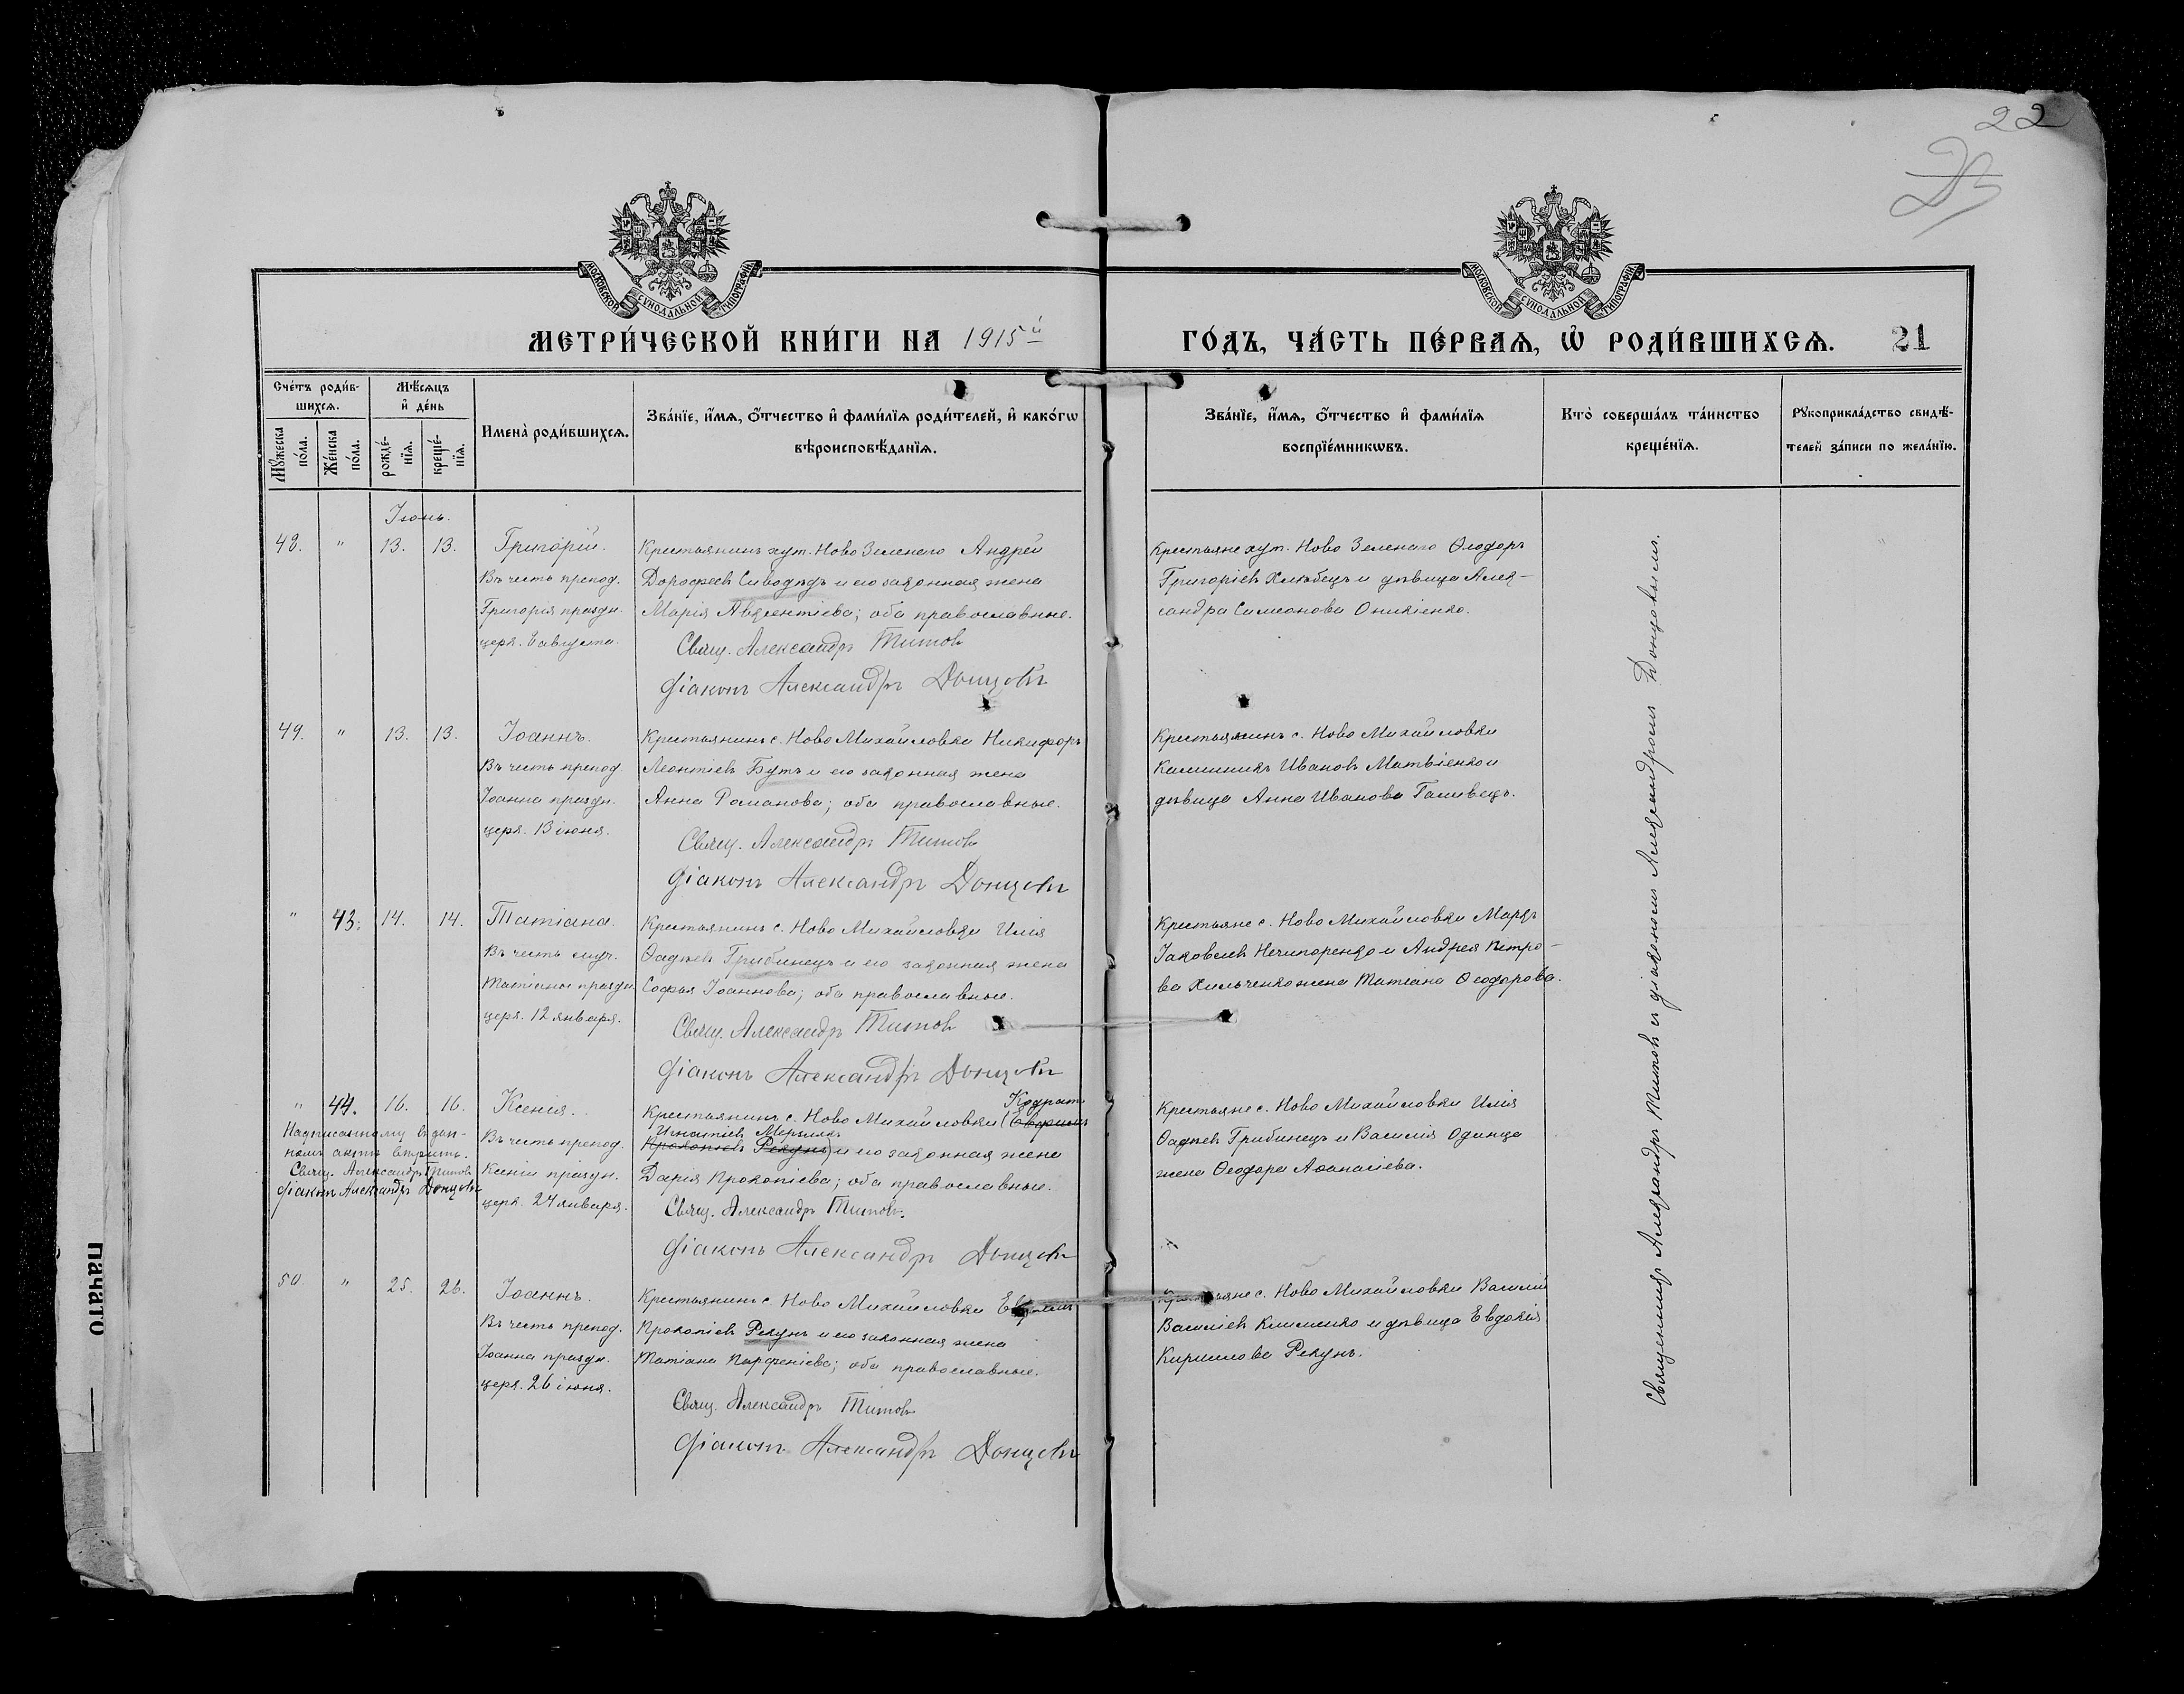 22
МОСКОВСКОЙ СѴНОДАЛЬНОЙ ТИПОГРАФІИ
МОСКОВСКОЙ СѴНОДАЛЬНОЙ ТИПОГРАФІИ
МЕТРИ́ЧЕСКОЙ КНИ́ГИ НА 1915й
ГО́ДЪ, ЧА́СТЬ ПЕ́РВАѦ, Ѿ РОДИ́ВШИХСѦ. 21
Сче́тъ роди́в-
шихсѧ.
Мꙋ́жеска по́ла.
Же́нска по́ла.
Мѣ́сѧцъ и҆ де́нь
рожде́-
нїѧ.
креще́-
нїѧ.
Имена̀ роди́вшихсѧ.
Зва́нїе, и҆́мѧ, ѻ҆́тчество и҆ фами́лїѧ роди́телей, и҆ како́гѡ
вѣроисповѣ́данїѧ.
Зва́нїе, и҆́мѧ, ѻ҆́тчество и҆ фами́лїѧ
воспрїе́мникѡвъ.
Кто̀ соверша́лъ та́инство
креще́нїѧ.
Рꙋкоприкла́дство свидѣ́-
телей за́писи по жела́нїю.
Іюнь.
48. " 13. 13. Григорій.
Въ честь препод.
Григорія праздн.
церк. 8 августа.
Крестьянинъ хут. Ново Зеленаго Андрей
Дорофеевъ Сиводѣдъ и его законная жена
Марія Авксентіева; оба православные.
Свящ. Александръ Титовъ
Діаконъ Александръ Донцовъ
Крестьяне хут. Ново Зеленаго Ѳеодоръ
Григоріевъ Хлѣбецъ и дѣвица Алек-
сандра Симеонова Оникіенко.
49. " 13. 13. Іоаннъ.
Въ честь препод.
Іоанна праздн.
церк. 13 іюня.
Крестьянинъ с. Ново Михайловки Никифоръ
Леонтіевъ Бутъ и его законная жена
Анна Романова; оба православные.
Свящ. Александръ Титовъ
Діаконъ Александръ Донцовъ
Крестьянинъ с. Ново Михайловки
Каллиникъ Ивановъ Матвіенко и
дѣвица Анна Иванова Галивецъ.
" 43. 14. 14. Татіана.
Въ честь муч.
Татіаны праздн.
церк. 12 января.
Крестьянинъ с. Ново Михайловки Илія
Ѳаддеевъ Грибинецъ и его законная жена
Софья Іоаннова; оба православные.
Свящ. Александръ Титовъ
Діаконъ Александръ Донцовъ
Крестьяне с. Ново Михайловки Маркъ
Іаковлевъ Нечипоренко и Андрея Петро-
ва Хильченко жена Татіана Ѳеодорова.
" 44. 16. 16. Ксенія.
Въ честь препод.
Ксеніи праздн.
церк. 24 января.
Надписанному въ дан-
номъ актѣ вѣрить.
Свящ. Александръ Титовъ
Діаконъ Александръ Донцовъ
Кодратъ
Крестьянинъ с. Ново Михайловки (Евфимій
Игнатіевъ
Прокопіевъ Рекунъ) и его законная жена
Дарія Прокопіева; оба православные.
Свящ. Александръ Титовъ.
Діаконъ Александръ Донцовъ
Крестьяне с. Ново Михайловки Илія
Ѳаддеевъ Грибинецъ и Василія Одинца
жена Ѳеодора Аѳанасіева.
50. " 25. 26. Іоаннъ.
Въ честь препод.
Іоанна праздн.
церк. 26 іюня.
Крестьянинъ с. Ново Михайловки Евфимій
Прокопіевъ Рекунъ и его законная жена
Татіана Парфеніева; оба православные.
Свящ. Александръ Титовъ
Діаконъ Александръ Донцовъ
Крестьяне с. Ново Михайловки Василій
Василіевъ Клименко и дѣвица Евдокія
Кириллова Рекунъ.
Священникъ Александръ Титовъ и діакономъ Александромъ Донцовымъ.
начато